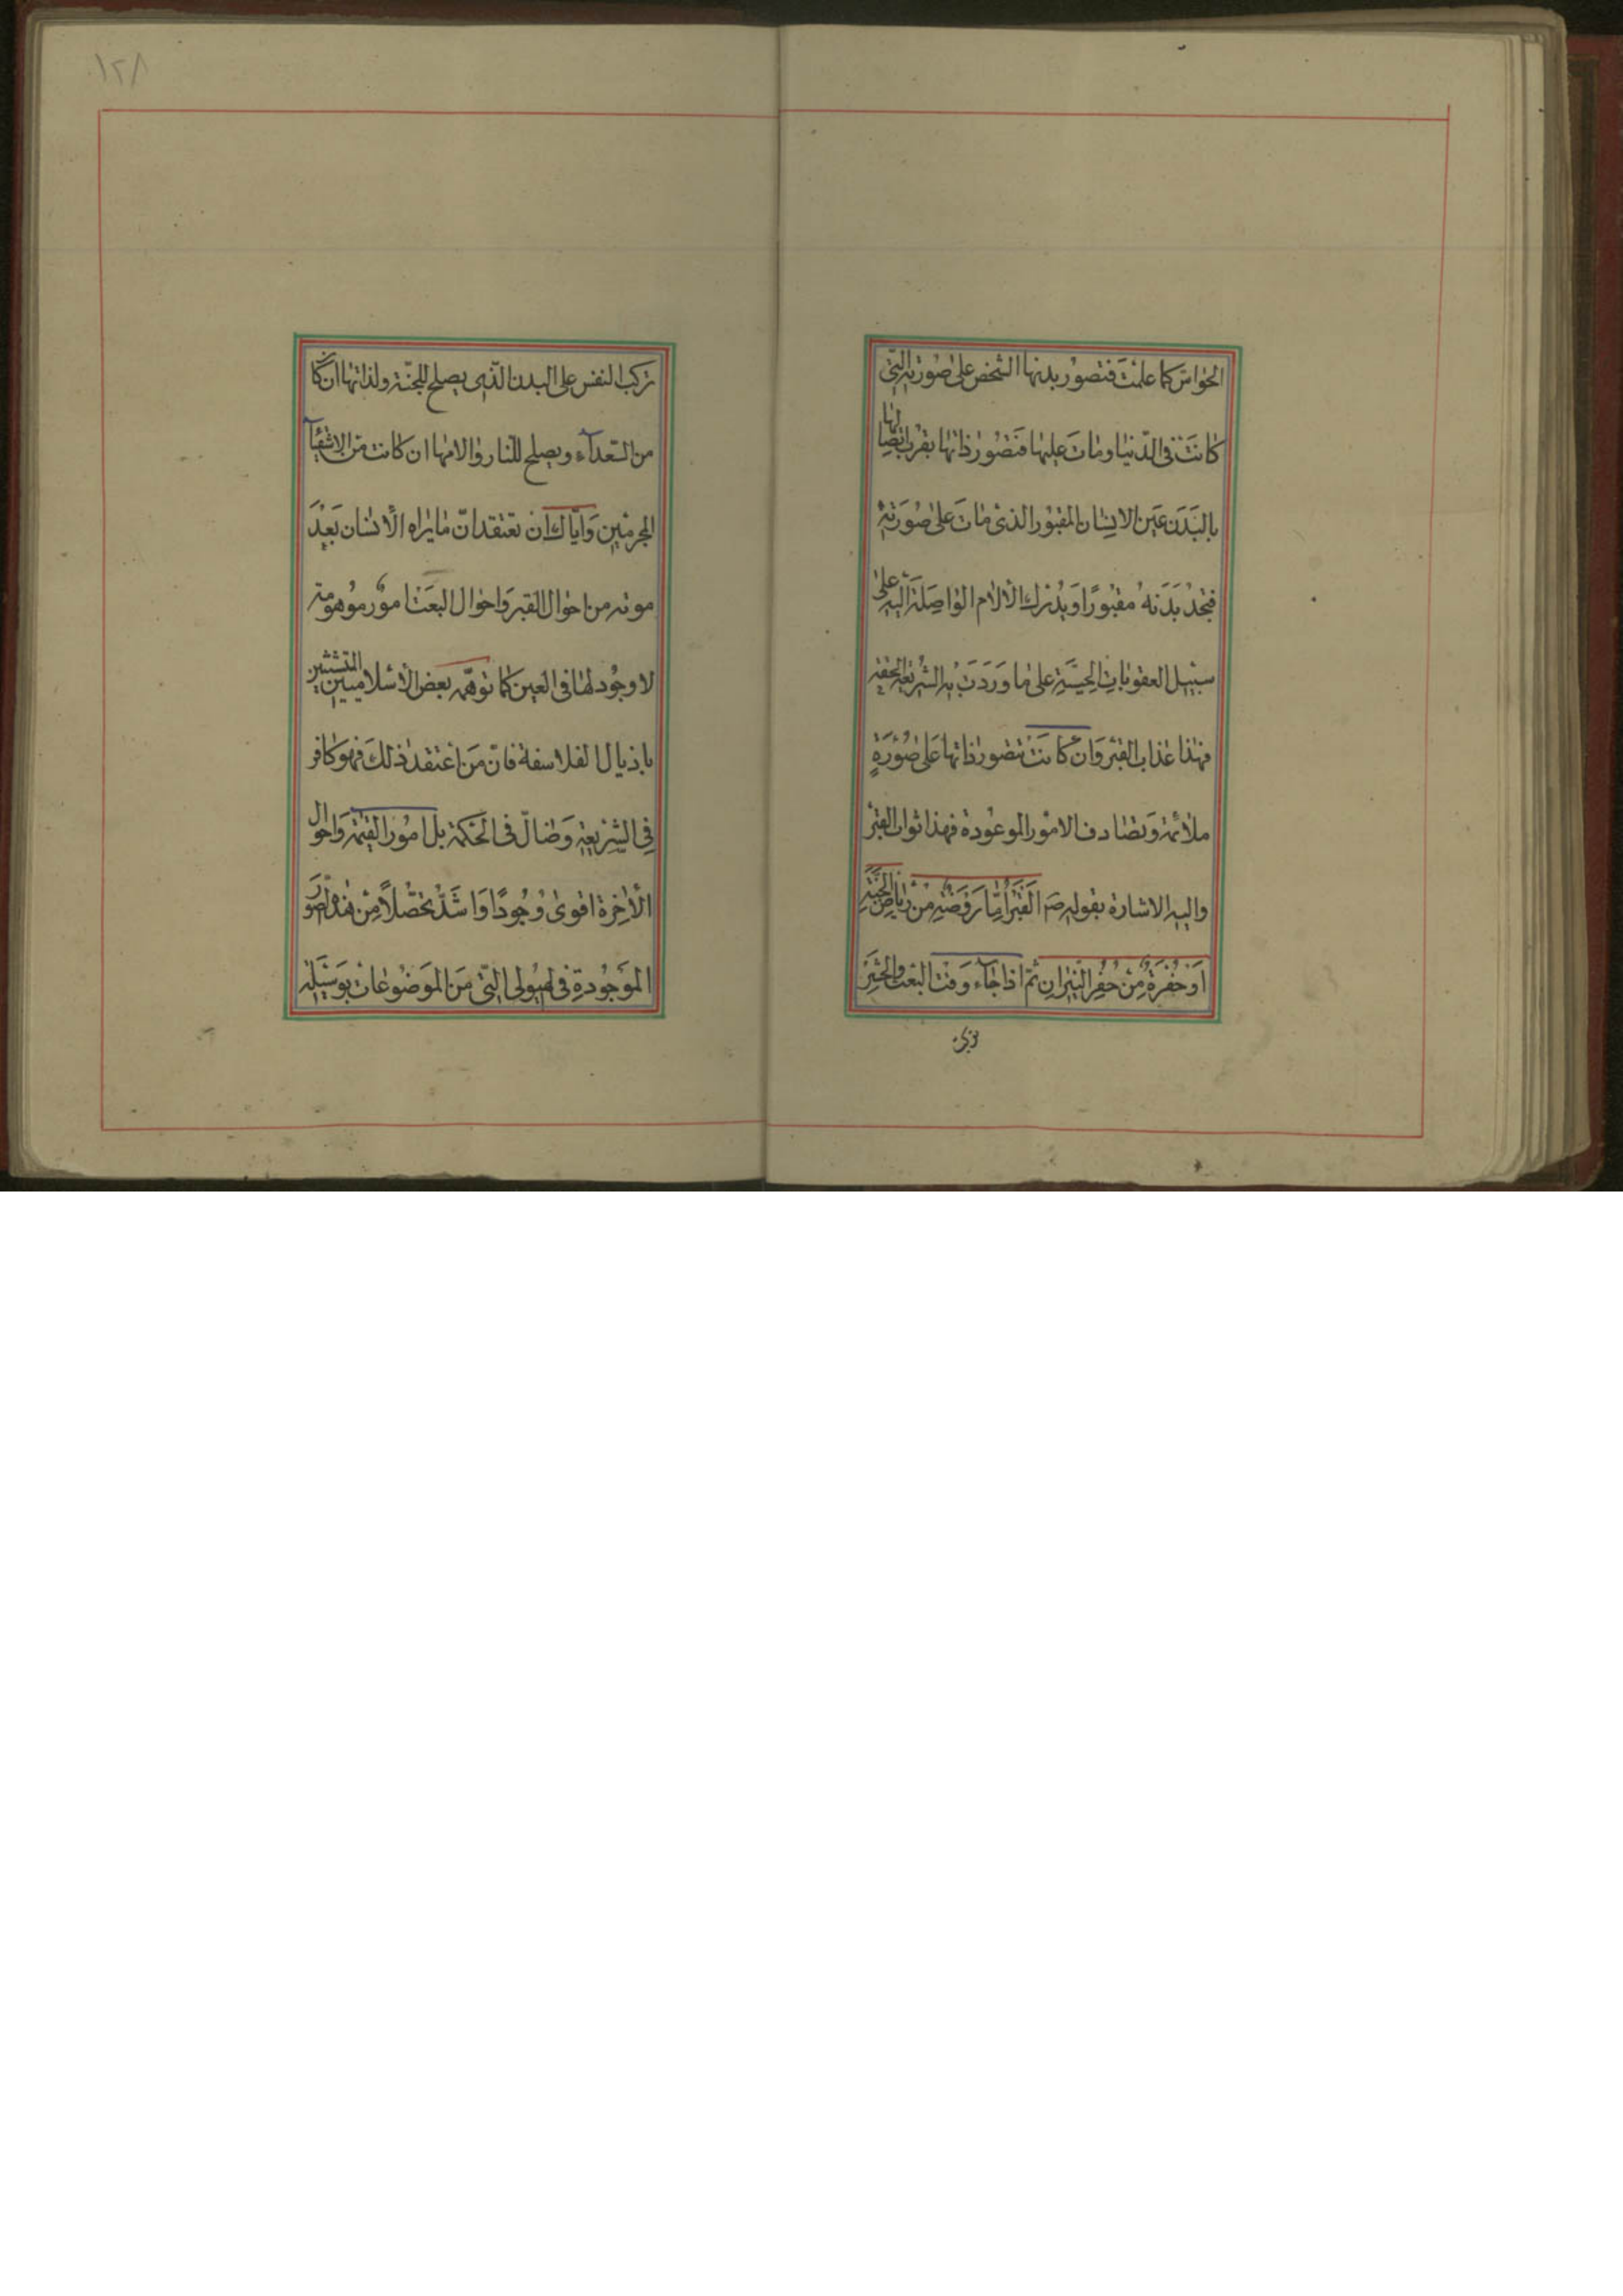 الحواسّ كما علمت فتصور بدنها الشخص على صورته التّى
كانت فى الدّنيا ومات عليها فتصور ذاتها بقرب اتصالها
بالبدن عين الانسان المقبور الذى مات على صورته
فيجد بدنه مقبورًا ويدرك الالام الواصلة اليه على
سبيل العقوبات الحسيّة على ما وردت به الشريعة الحقة
فهذا عذاب القبر وان كانت تتصور ذاتها على صورةٍ
ملائمة وتصادف الامور الموعودة فهذا ثواب القبر
واليه الاشارة بقوله صم القبر امّا روضة من رياض الجنّة
او حفرة من حفر النيران ثمّ اذا جاء وقت البعث والحشر
تركب
١٢٨
تركب النفس على البدن الّذى يصلح للجنّة ولذاتها ان كانت
من السّعدآء ويصلح للنار والامها ان كانت من الاشقيآ
المجرمين وايّاك ان تعتقد انّ ما يراه الأنسان بعد
موته من احوال القبر واحوال البعث امور موهومة
لا وجود لها فى العين كما توهّمه بعض الأسلاميين المتشبثين
باذيال الفلاسفة فانّ من اعتقد ذلك فهو كافر
فى الشريعة وضالّ فى الحكمة بل امور القيمة واحوال
الأخرة اقوى وجودًا واشدّ تحصّلاً من هذه الصور
الموجودة فى الهيولى التّى من الموضوعات بوسيلة